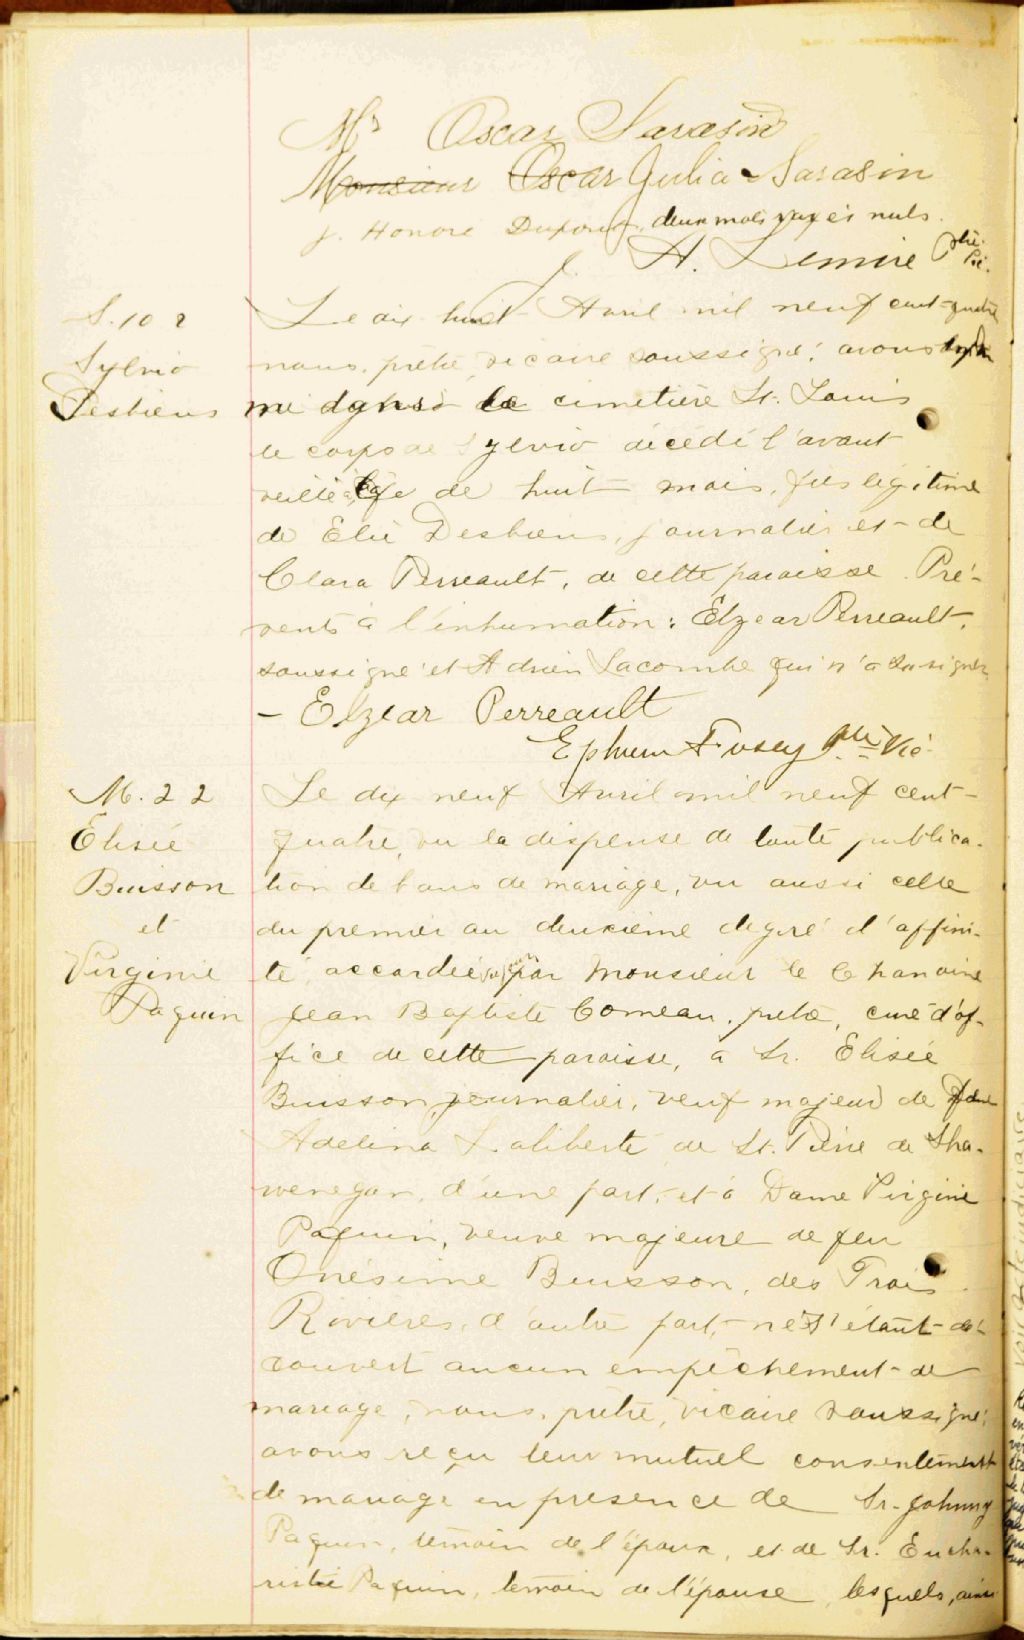 Mr Oscar Sarasin
Monsieur Oscar Julia Sarasin
J. Honoré Dupont, deux mots rayés nuls.
J. H. Lemire Ptre
S. 102
Sylvio
Desbiens
Le dix huit Avril mil neuf cent-quatre
nous, prêtre, vicaire soussigné, avons inhu
mé dans le cimetière St. Louis
le corps de Sylvio décédé l'avant
veille à l'âge de huit mois, fils légitime
de Elie Desbiens, journalier et de
Clara Perreault, de cette paroisse. Pré-
sents à l'inhumation: Elzear Perreault,
soussigné et Adrien Lacombe qui n'a su signer
- Elzear Perreault
Ephrem Fusey Ptre Vic.
M. 22
Elisée
Buisson
et
Virginie
Paquin
Le dix neuf Avril mil neuf cent-
quatre, vu la dispense de toute publica-
tion de bans de mariage, vu aussi celle
du premier au deuxième degré d'affini-
té, accordée par Monsieur le Chanoine
Jean Baptiste Comeau, prêtre, curé d'of-
fice de cette paroisse, à Sr. Elisée
Buisson, journalier, veuf majeur de feue
Adelina Laliberté de St. Pierre de Sha-
wenegan, d'une part, et à Dame Virginie
Paquin, veuve majeure de feu
Onésime Buisson, des Trois
Rivières, d'autre part, ne s'étant dé-
couvert aucun empêchement de
mariage, nous, prêtre, vicaire soussigné,
avons reçu leur mutuel consentement
de mariage en présence de Sr. Johnny
Paquin, témoin de l'époux, et de Sr. Eucha-
ristie Paquin, témoin de l'épouse, lesquels, ainsi